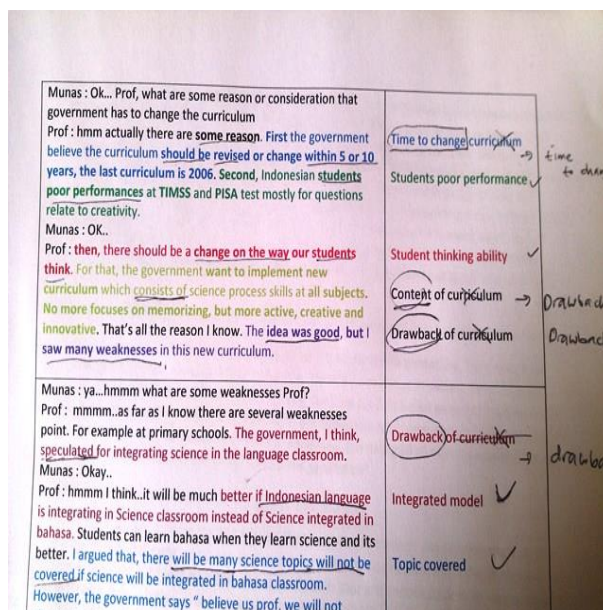 Munas : Ok... Prof, what are some reason or consideration that
government has to change the curriculum
Prof : hmm actually there are some reason. First the government
believe the curriculum should be revised or change within 5 or 10
years, the last curriculum is 2006. Second, Indonesian students
poor performances at TIMSS and PISA test mostly for questions
relate to creativity.
Munas : OK..
Prof : then, there should be a change on the way our students
think. For that, the government want to implement new
curriculum which consists of science process skills at all subjects.
No more focuses on memorizing, but more active, creative and
innovative. That's all the reason I know. The idea was good, but I
saw many weaknesses in this new curriculum.
Time to change curriculum
time
to chan
Students poor performance
Student thinking ability
Content of curriculum
Drawback
Drawback of curriculum
Drawba
Munas : ya...hmmm what are some weaknesses Prof?
Prof : mmmm..as far as I know there are several weaknesses
point. For example at primary schools. The government, I think,
speculated for integrating science in the language classroom.
Munas : Okay..
Prof : hmmm I think..it will be much better if Indonesian language
is integrating in Science classroom instead of Science integrated in
bahasa. Students can learn bahasa when they learn science and its
better. I argued that, there will be many science topics will not be
covered if science will be integrated in bahasa classroom.
However, the government says " believe us prof, we will not
Drawback of curriculum
drawba
Integrated model
Topic covered